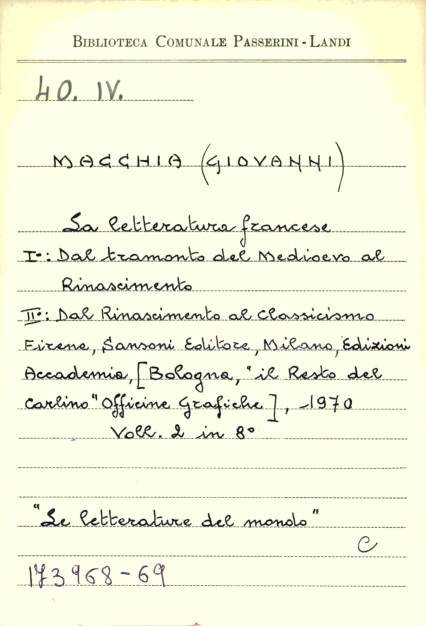 BIBLIOTECA COMUNALE PASSERINI - LANDI
40. IV.
MACCHIA (GIOVANNI)
La letteratura francese
I°: Dal tramonto del Medioevo al
Rinascimento
II°: Dal Rinascimento al Classicismo
Firenze, Sansoni Editore, Milano, Edizioni
Accademia, [Bologna, "il Resto del
Carlino" Officine Grafiche], 1970
Voll. 2 in 8°
"Le letterature del mondo"
C
173968-69